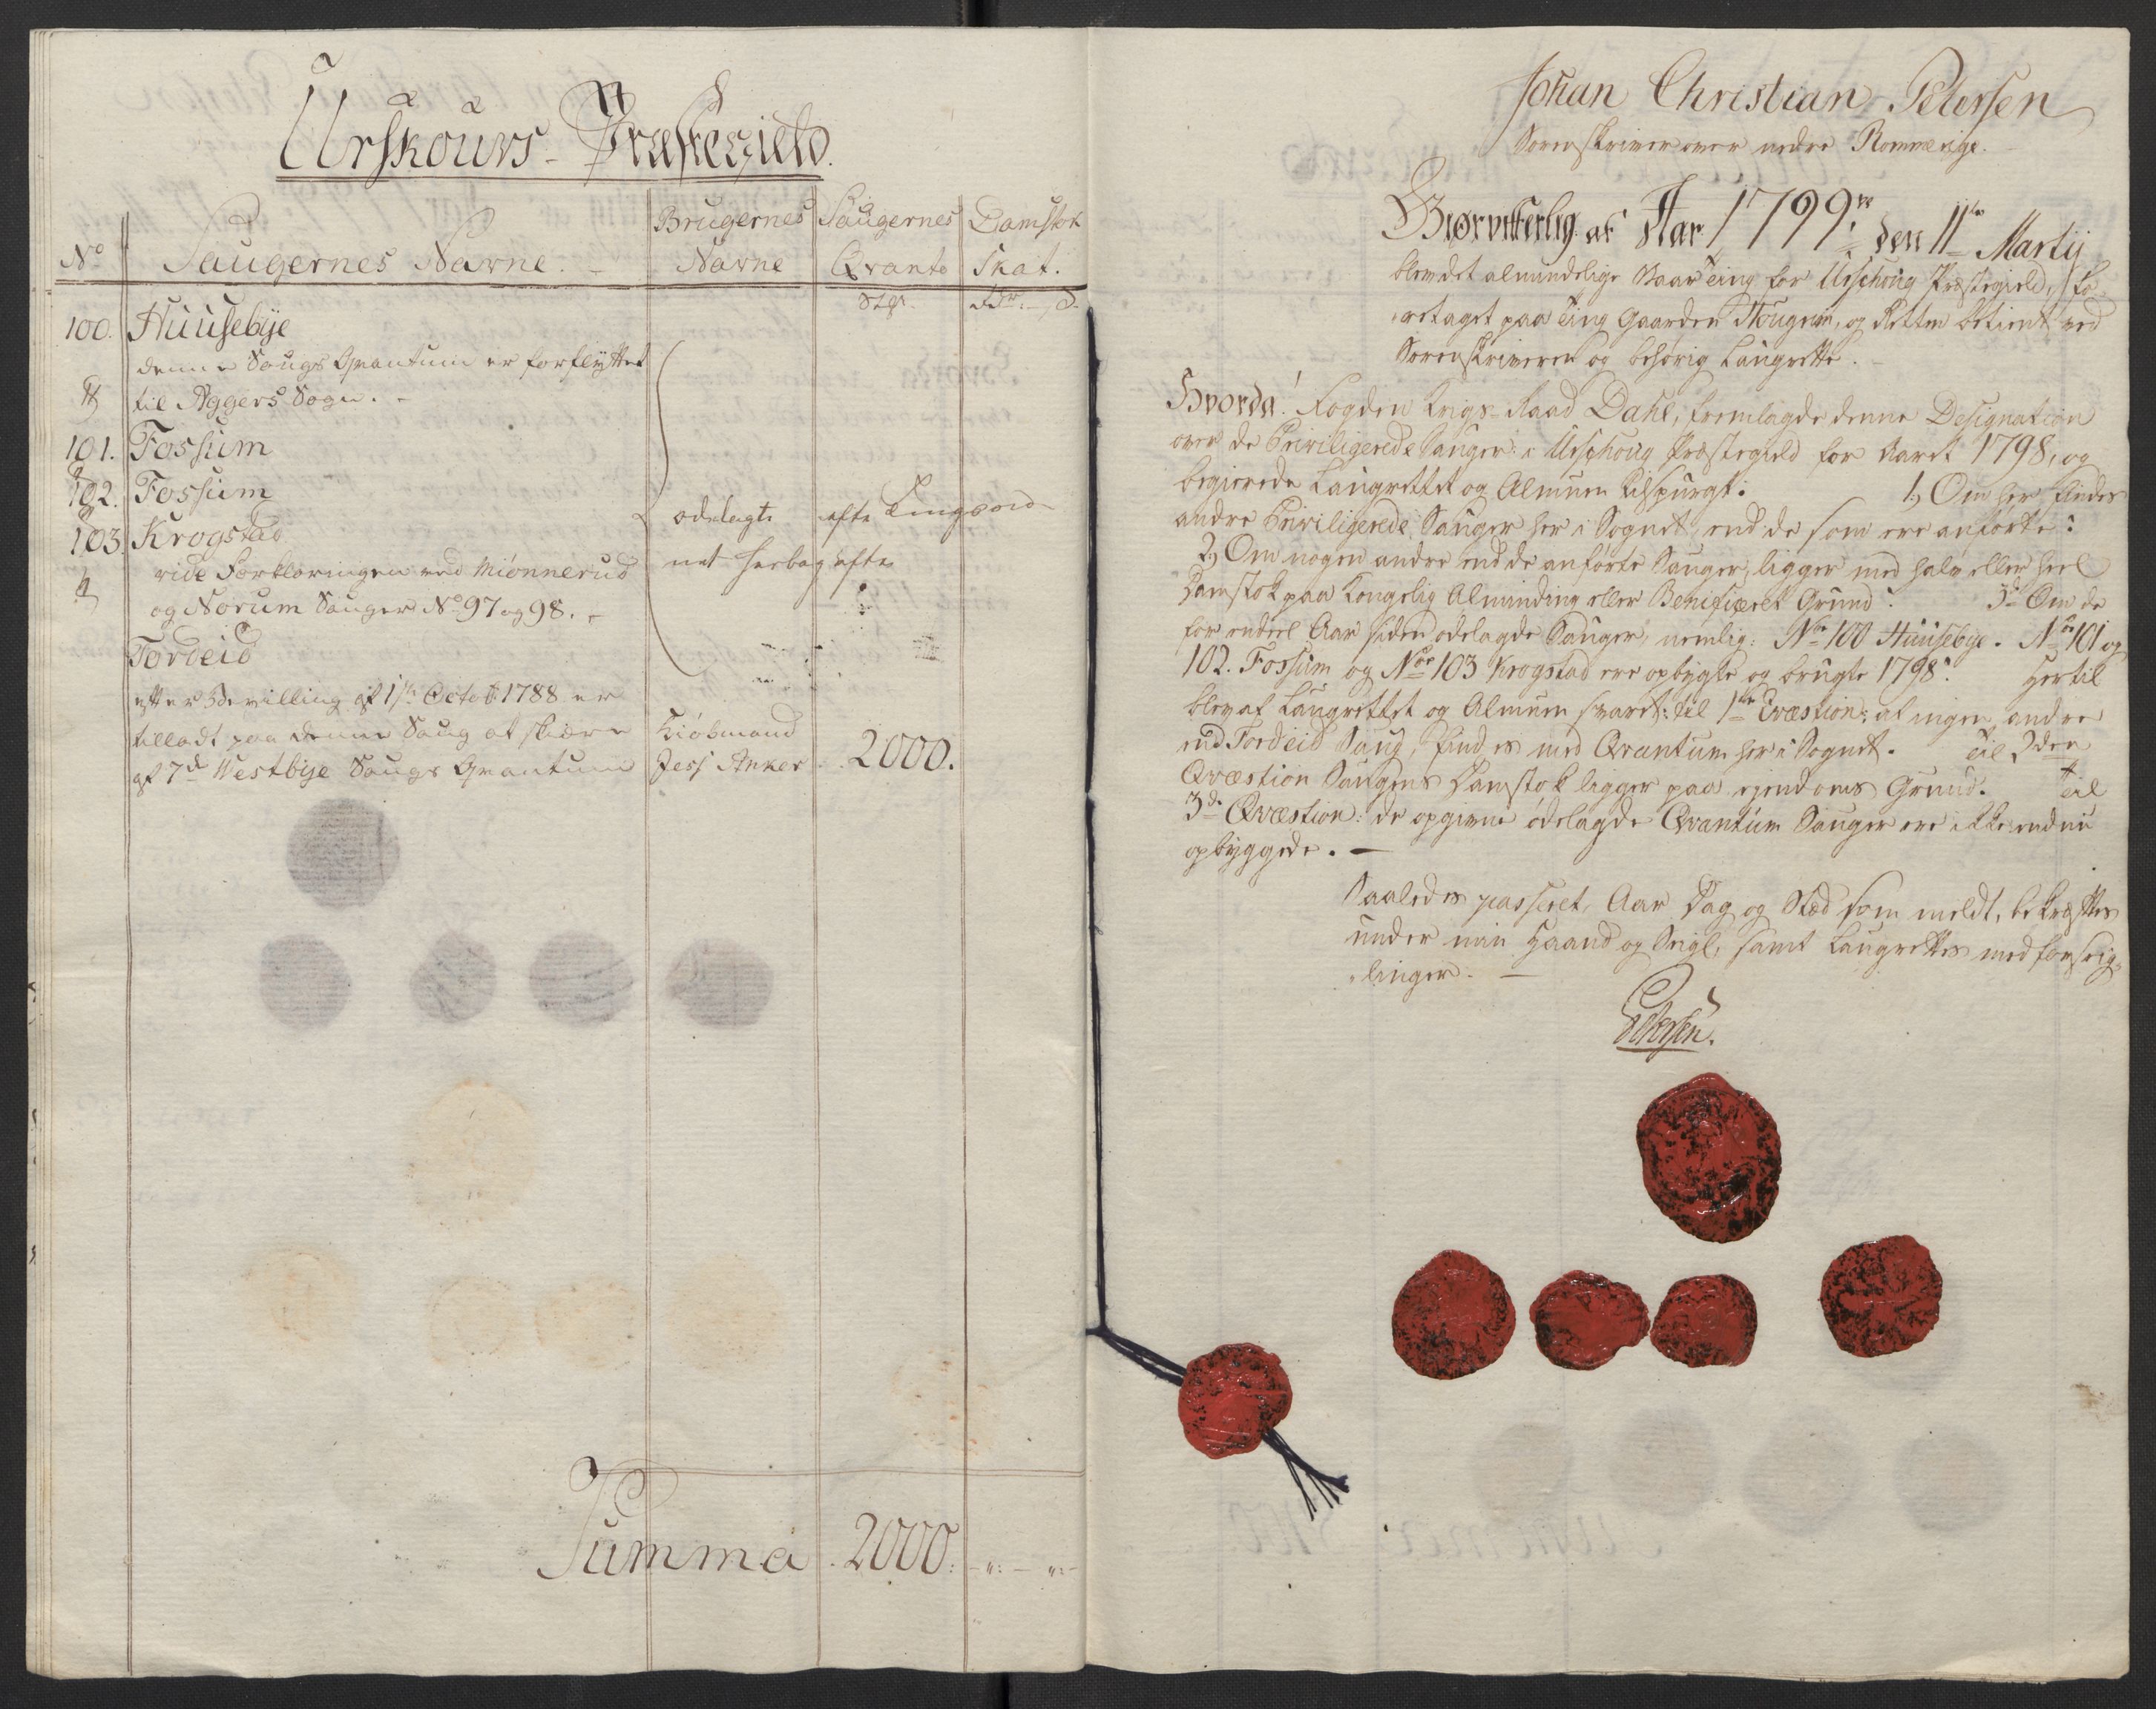 Urskours Præstegield.
No
Saugernes Navne.
Brugernes Navne
Saugernes Qvanto
Damstok Skat.
100. Huusebye
denne Saugs Qvantum er forflyttet
til Aggers Sogn.
101. Fossum
102. Fossum
103. Krogstad
vide Forklaringen ved Miönnerud
og Norum Sauger No 97 og 98.
ödelagte efter Tingsvid-
net herbag efter
Tordeid
efter Bevilling af 1ste Octob: 1788 er
tilladt paa denne Saug at skiære
af 7de Westbye Saugs Qvantum
Kiöbmand
Jess Anker 2000.
Summa 2000.
Johan Christian Petersen
Sorenskriver over nedre Rommerige.
Giør vitterlig at Aar 1799, den 11te Martij
blev det almindelige Vaarting for Urschoug Præstegield, fo-
retaget paa Ting Gaarden Hougrim, og Retten betient ved
Sorenskriveren og behörig Laugrette.
Hvorda! Fogden Krigs-Raad Dahl, fremlagde denne Designation
over de Priviligerede Sauger i Urschoug Præstegield for Aaret 1798, og
begierede Laugrettet og Almuen tilspurgt: 1) Om her findes
andre Priviligerede Sauger her i Sognet, end de som ere anförte?
2) Om nogen andre end de anförte Sauger, ligger med halv eller heel
Damstok paa Kongelig Alminding eller Benificeret Grund? 3de Om de
for endeel Aar siden ödelagde Sauger, nemlig: No 100 Huusebye. No 101 og
102. Fossum og No 103 Krogstad ere opbygte og brugte 1798? Hertil
blev af Laugrettet og Almuen svaret: til 1te Qvæstion: at ingen andre
end Tordeid Saug, findes med Qvantum her i Sognet. til 2den
Qvæstion Saugens Damstok ligger paa ejendoms Grund. til
3de Qvæstion: de opgivne ödelagde Qvantum Sauger ere ikke endnu
opbyggede. -
Saaledes passeret, Aar Dag og Stæd som meldt, bekræftes
under min Haand og Seigl, samt Laugrettes medforseig-
linger. -
Petersen.